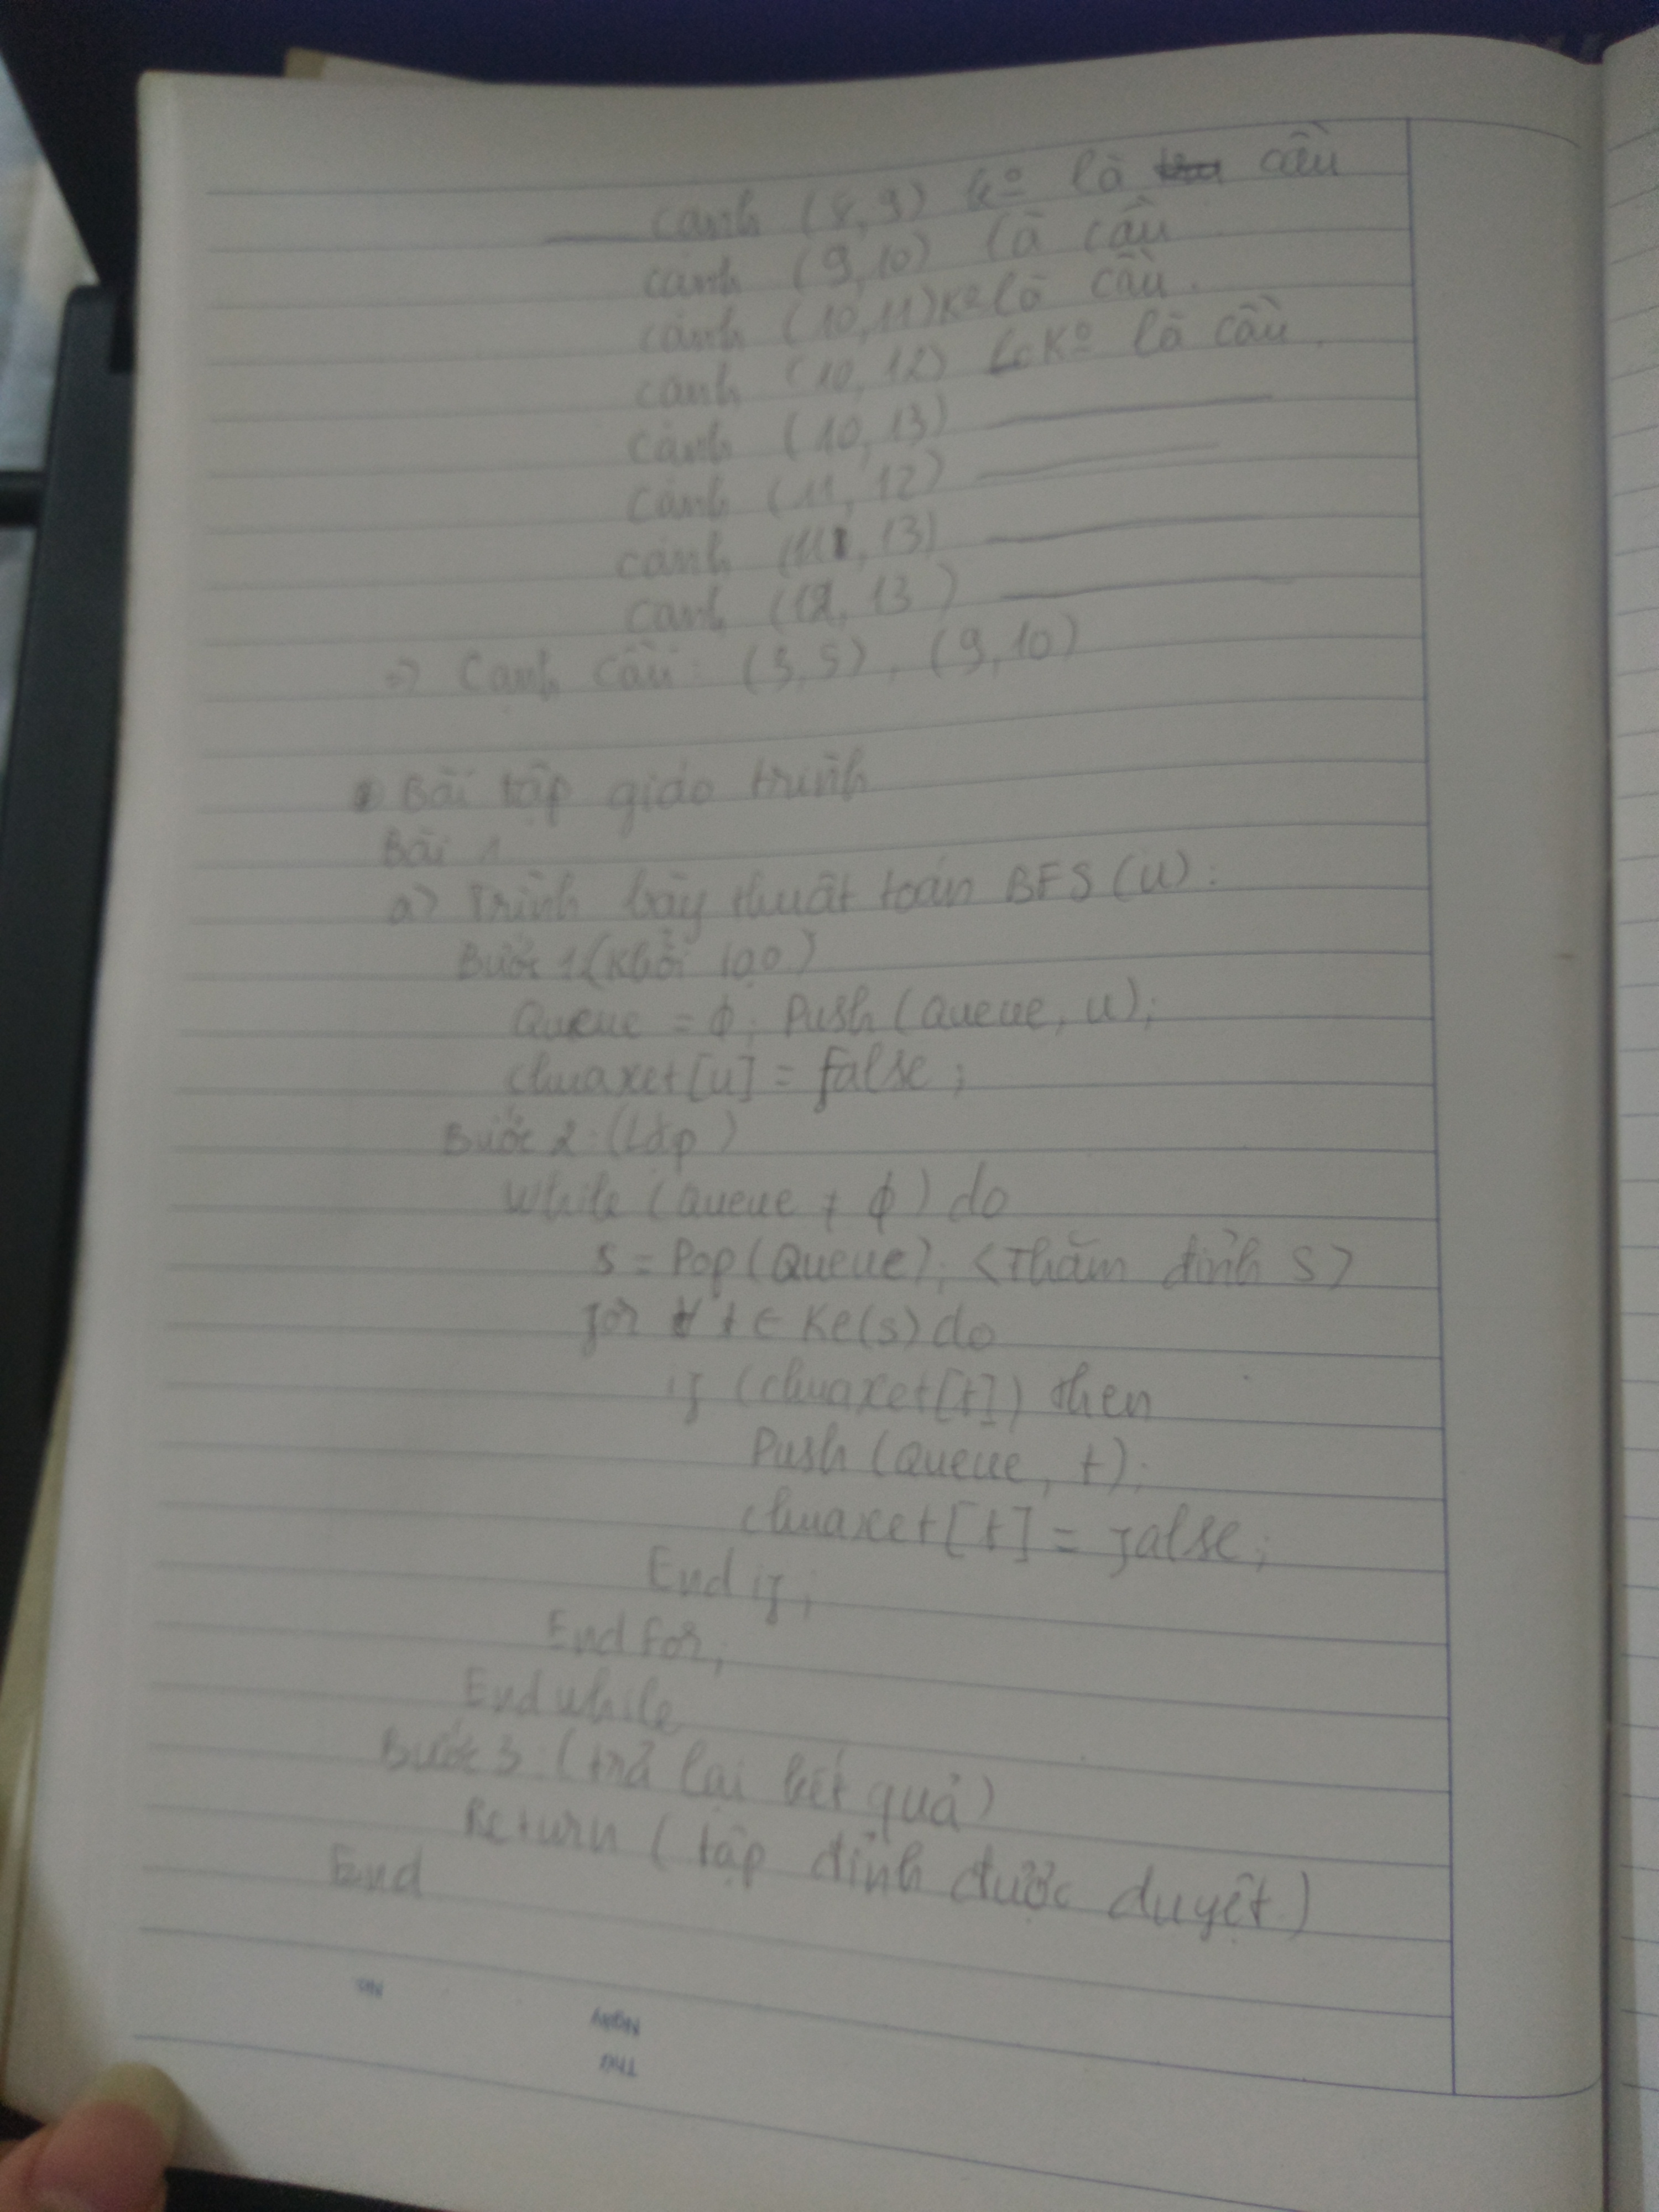 cạnh (8,9) k° là cầu
cạnh (9,10) là cầu
cạnh (10,11) K° là cầu.
cạnh (10,12) K° là cầu.
cạnh (10,13) ——
cạnh (11,12) ——
cạnh (11,13) ——
cạnh (12,13) ——
=> Cạnh cầu: (3,5), (9,10)
Bài tập giáo trình
Bài 1
a) Trình bày thuật toán BFS(u):
Bước 1 (Khởi tạo)
Queue = ϕ; Push(Queue, u);
chuaxet[u] = false;
Bước 2: (Lặp)
While (Queue ≠ ϕ) do
s = Pop(Queue); <Thăm đỉnh s>
for ∀ t ∈ Ke(s) do
if (chuaxet[t]) then
Push(Queue, t);
chuaxet[t] = false;
End if;
End for;
End while
Bước 3: (trả lại kết quả)
Return (tập đỉnh được duyệt)
End
No.
Ngày
Thứ